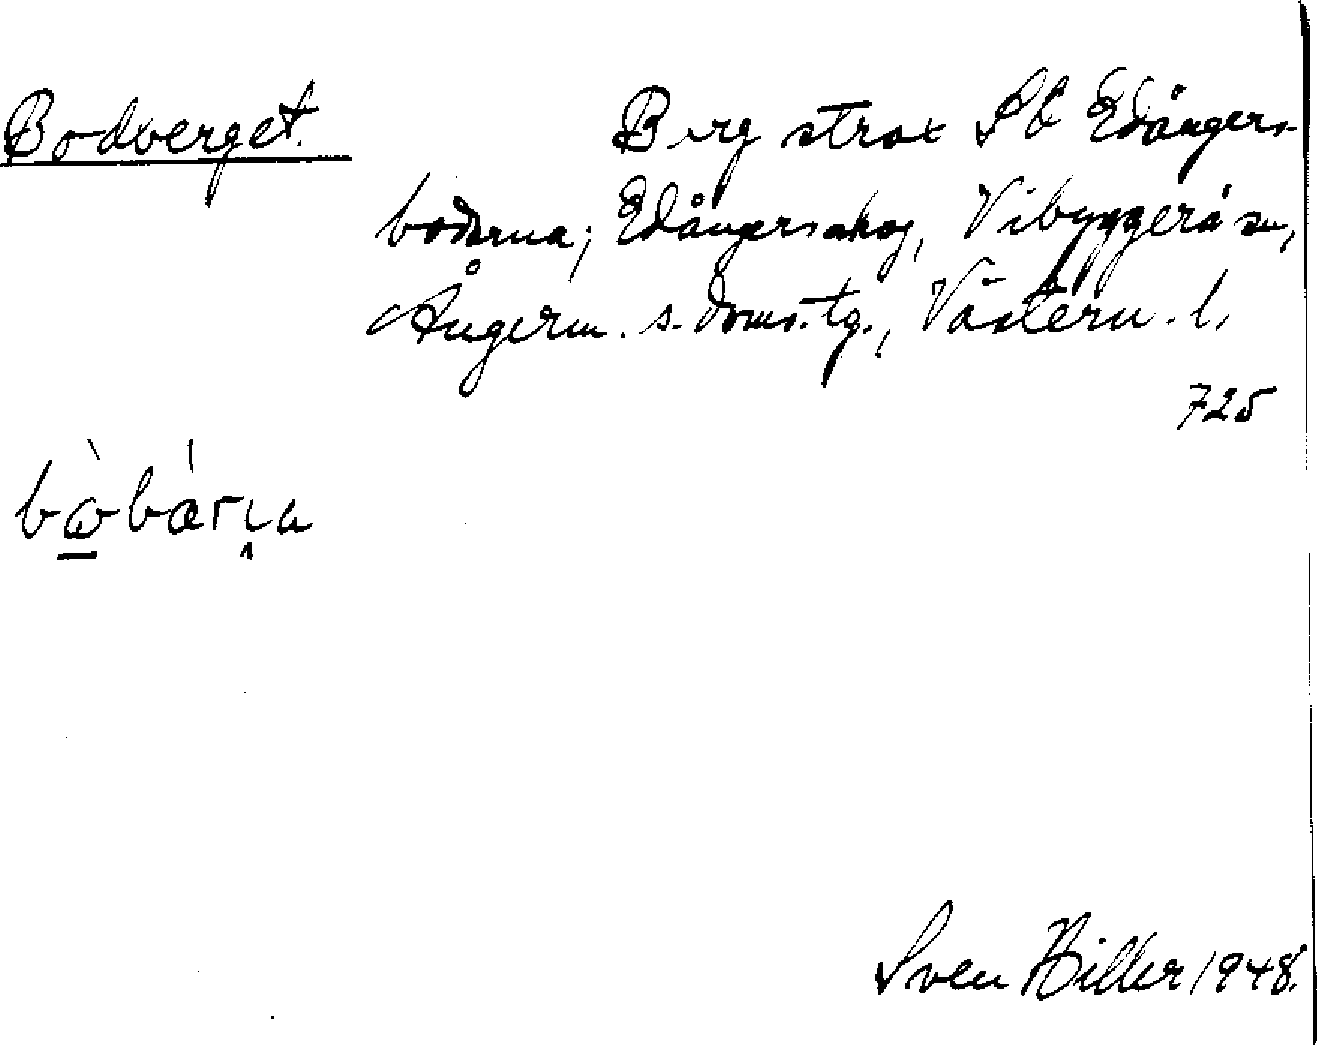 Bodberget. Berg strax SO Edångers-
bodarna; Edångers skog, Vibyggerå sn,
Ångerm. s. doms.tg., Västern. l.
725
Sven Hiller 1948.